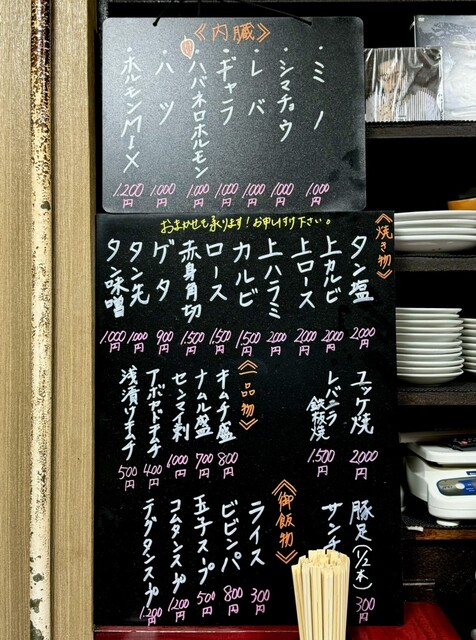 《内臓》
・ミノ 1,000円
・シマチョウ 1,000円
・レバ 1,000円
・ギャラ 1,000円
・ハバネロホルモン 1,000円
・ハツ 1,000円
・ホルモンMIX 1,200円
おまかせも承ります!お申し付け下さい。
《焼き物》
タン塩 2,000円
上カルビ 2,000円
上ロース 2,000円
上ハラミ 2,000円
カルビ 1,500円
ロース 1,500円
赤身角切 1,500円
ゲタ 900円
タン先 1,000円
タン味噌 1,000円
ユッケ焼 2,000円
レバニラ鉄板焼 1,500円
《一品物》
キムチ盛 800円
ナムル盛 700円
センマイ刺 1,000円
アボカドキムチ 400円
浅漬けキムチ 500円
豚足(1/2本) 300円
サンチ
《御飯物》
ライス 300円
ビビンパ 800円
玉子スープ 500円
コムタンスープ 1,200円
テグタンスープ 1,200円